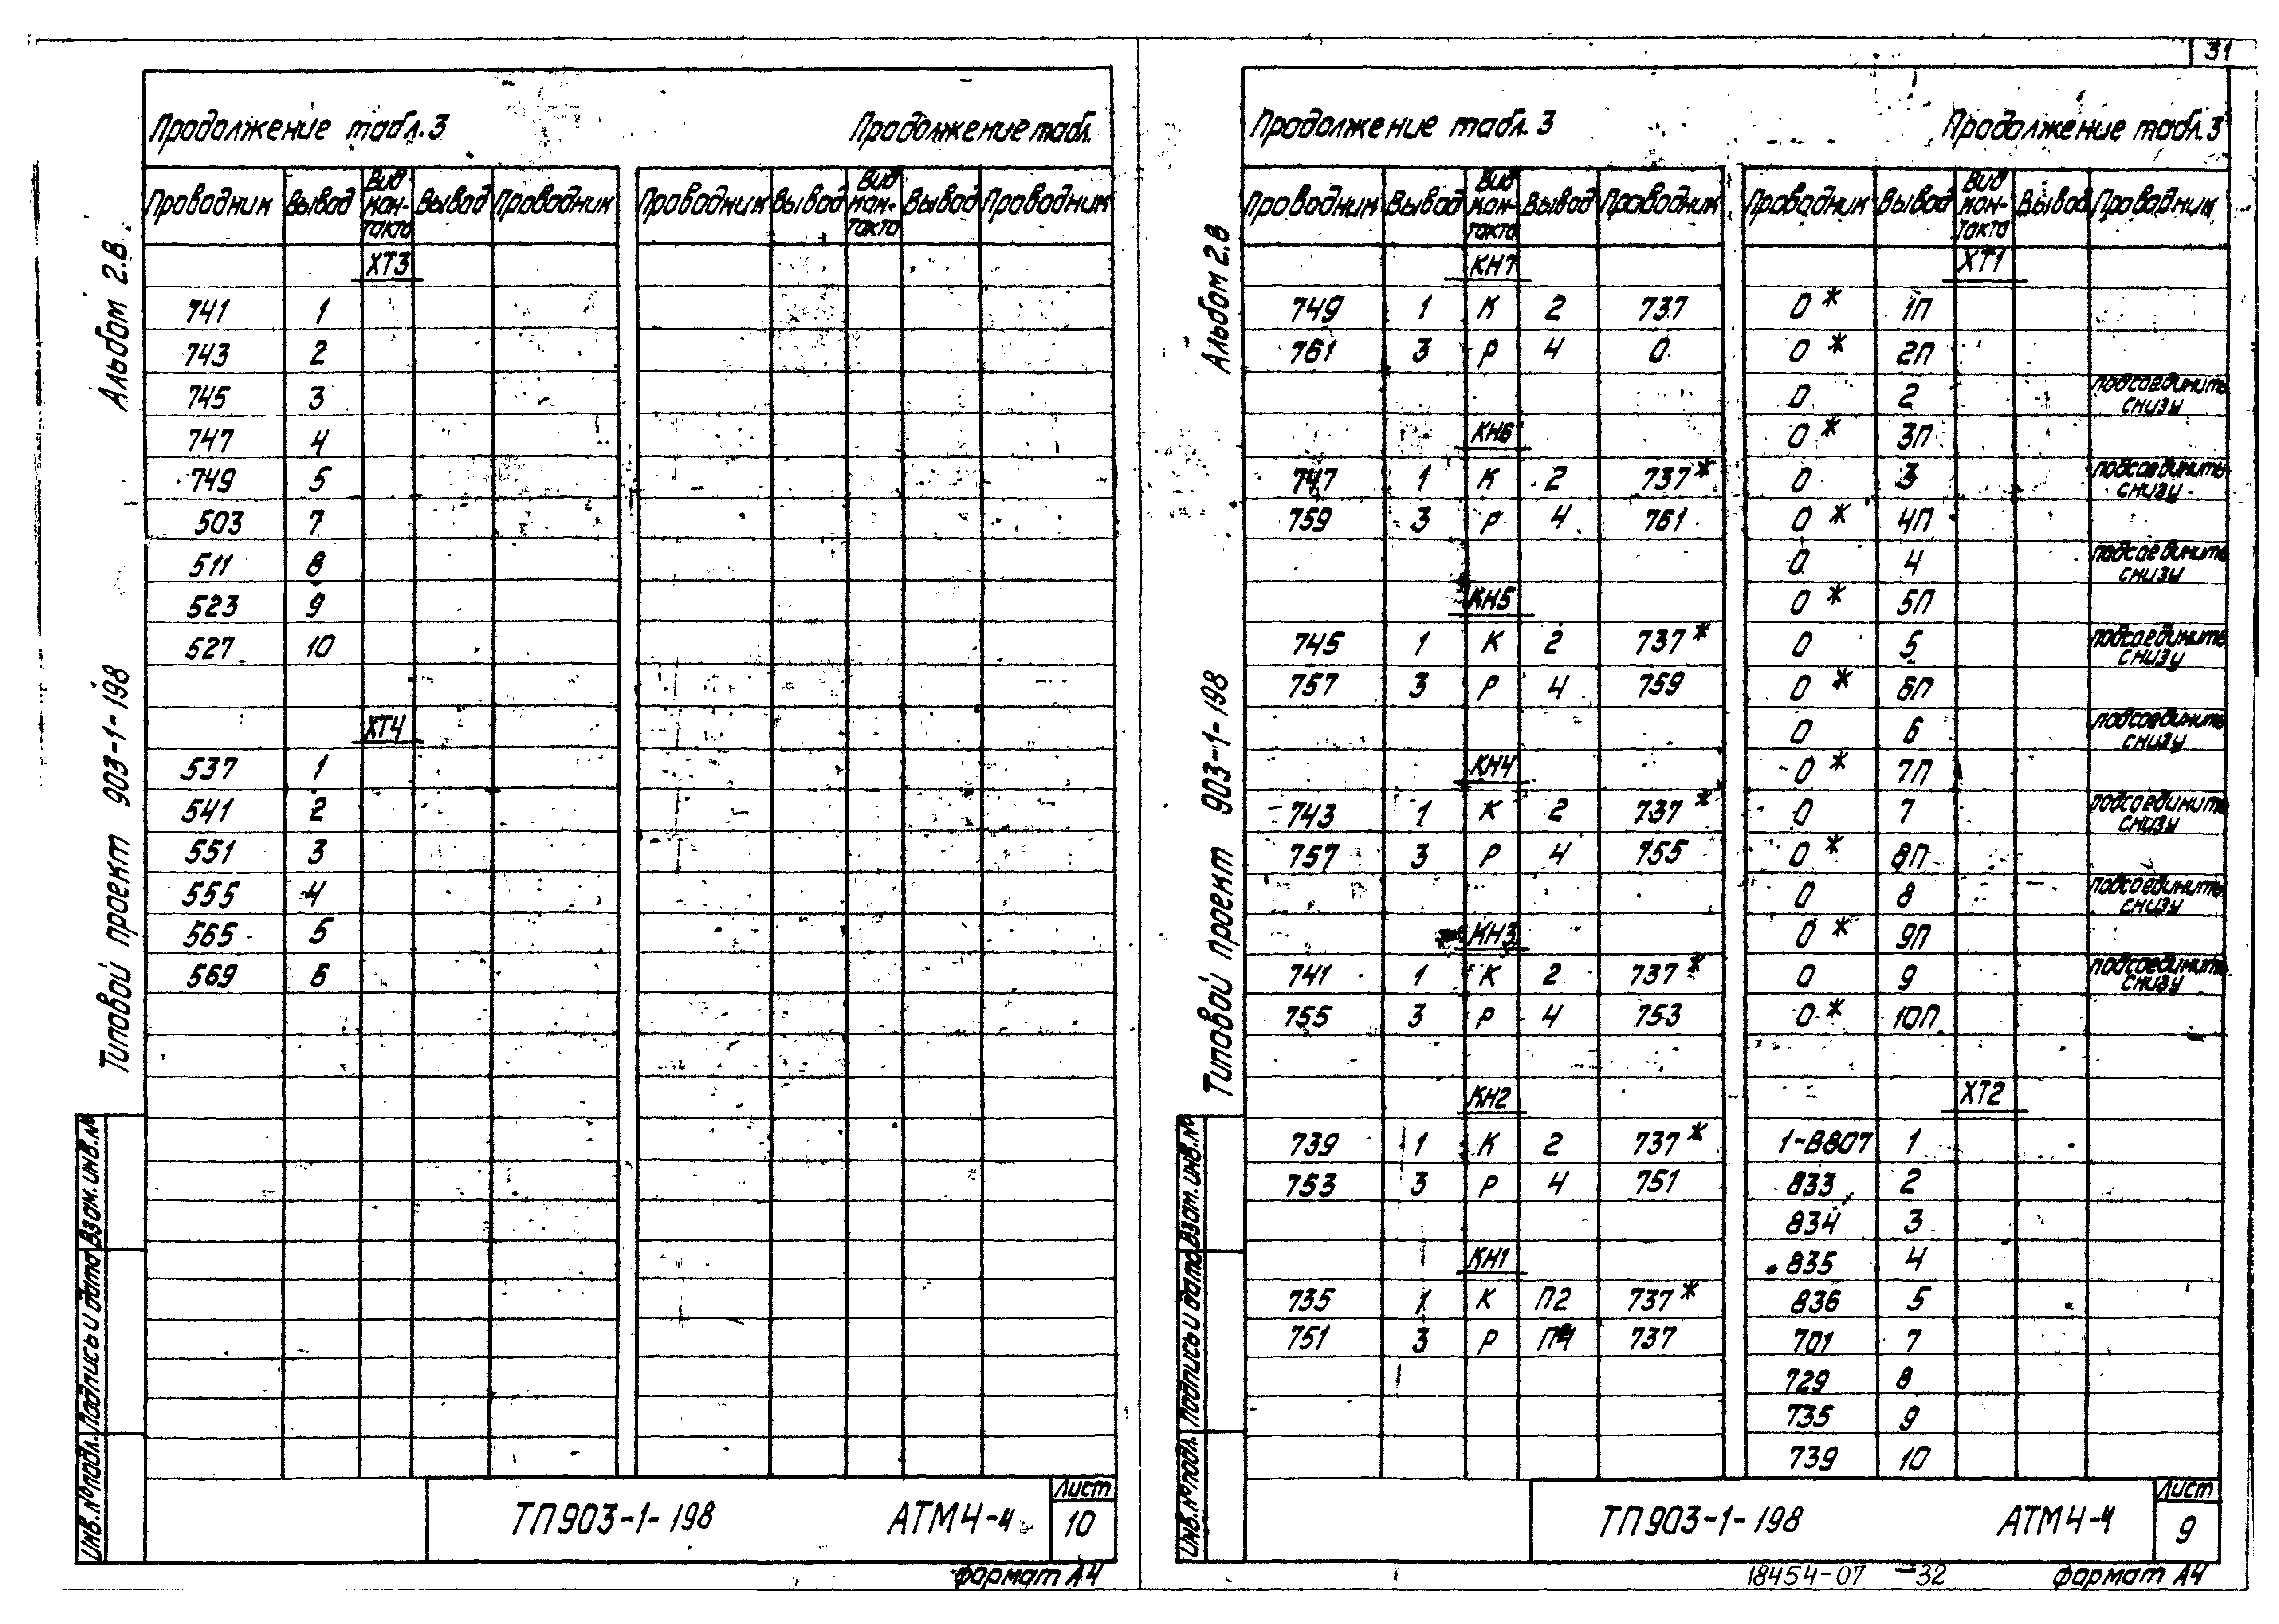 31
Продолжение табл. 3
Продолжение табл.
Проводник Вывод Вид кон-такта Вывод Проводник Проводник Вывод Вид кон-такта Вывод Проводник
ХТ3
741 1
743 2
745 3
747 4
749 5
503 7
511 8
523 9
527 10
ХТ4
537 1
541 2
551 3
555 4
565 5
569 6
Альбом 2.В
Типовой проект 903-1-198
Инв.№подл. Подпись и дата Взам.инв.№
ТП903-1-198 АТМ4-4
Лист
10
Формат А4
Продолжение табл. 3
Продолжение табл.3
Проводник Вывод Вид кон-такта Вывод Проводник
КН7
749 1 К 2 737
761 3 Р 4 0
КН6
747 1 К 2 737*
759 3 Р 4 761
КН5
745 1 К 2 737*
757 3 Р 4 759
КН4
743 1 К 2 737*
757 3 Р 4 755
КН3
741 1 К 2 737*
755 3 Р 4 753
КН2
739 1 К 2 737*
753 3 Р 4 751
КН1
735 1 К П2 737*
751 3 Р П4 737
Проводник Вывод Вид кон-такта Вывод Проводник
ХТ1
0* 1П
0* 2П
0 2 подсоединить снизу
0* 3П
0 3 подсоединить снизу
0* 4П
0 4 подсоединить снизу
0* 5П
0 5 подсоединить снизу
0* 6П
0 6 подсоединить снизу
0* 7П
0 7 подсоединить снизу
0* 8П
0 8 подсоединить снизу
0* 9П
0 9 подсоединить снизу
0* 10П
ХТ2
1-В807 1
833 2
834 3
835 4
836 5
701 7
729 8
735 9
739 10
Альбом 2.В
Типовой проект 903-1-198
Инв.№подл. Подпись и дата Взам.инв.№
ТП903-1-198 АТМ4-4
Лист
9
18454-07 32
Формат А4